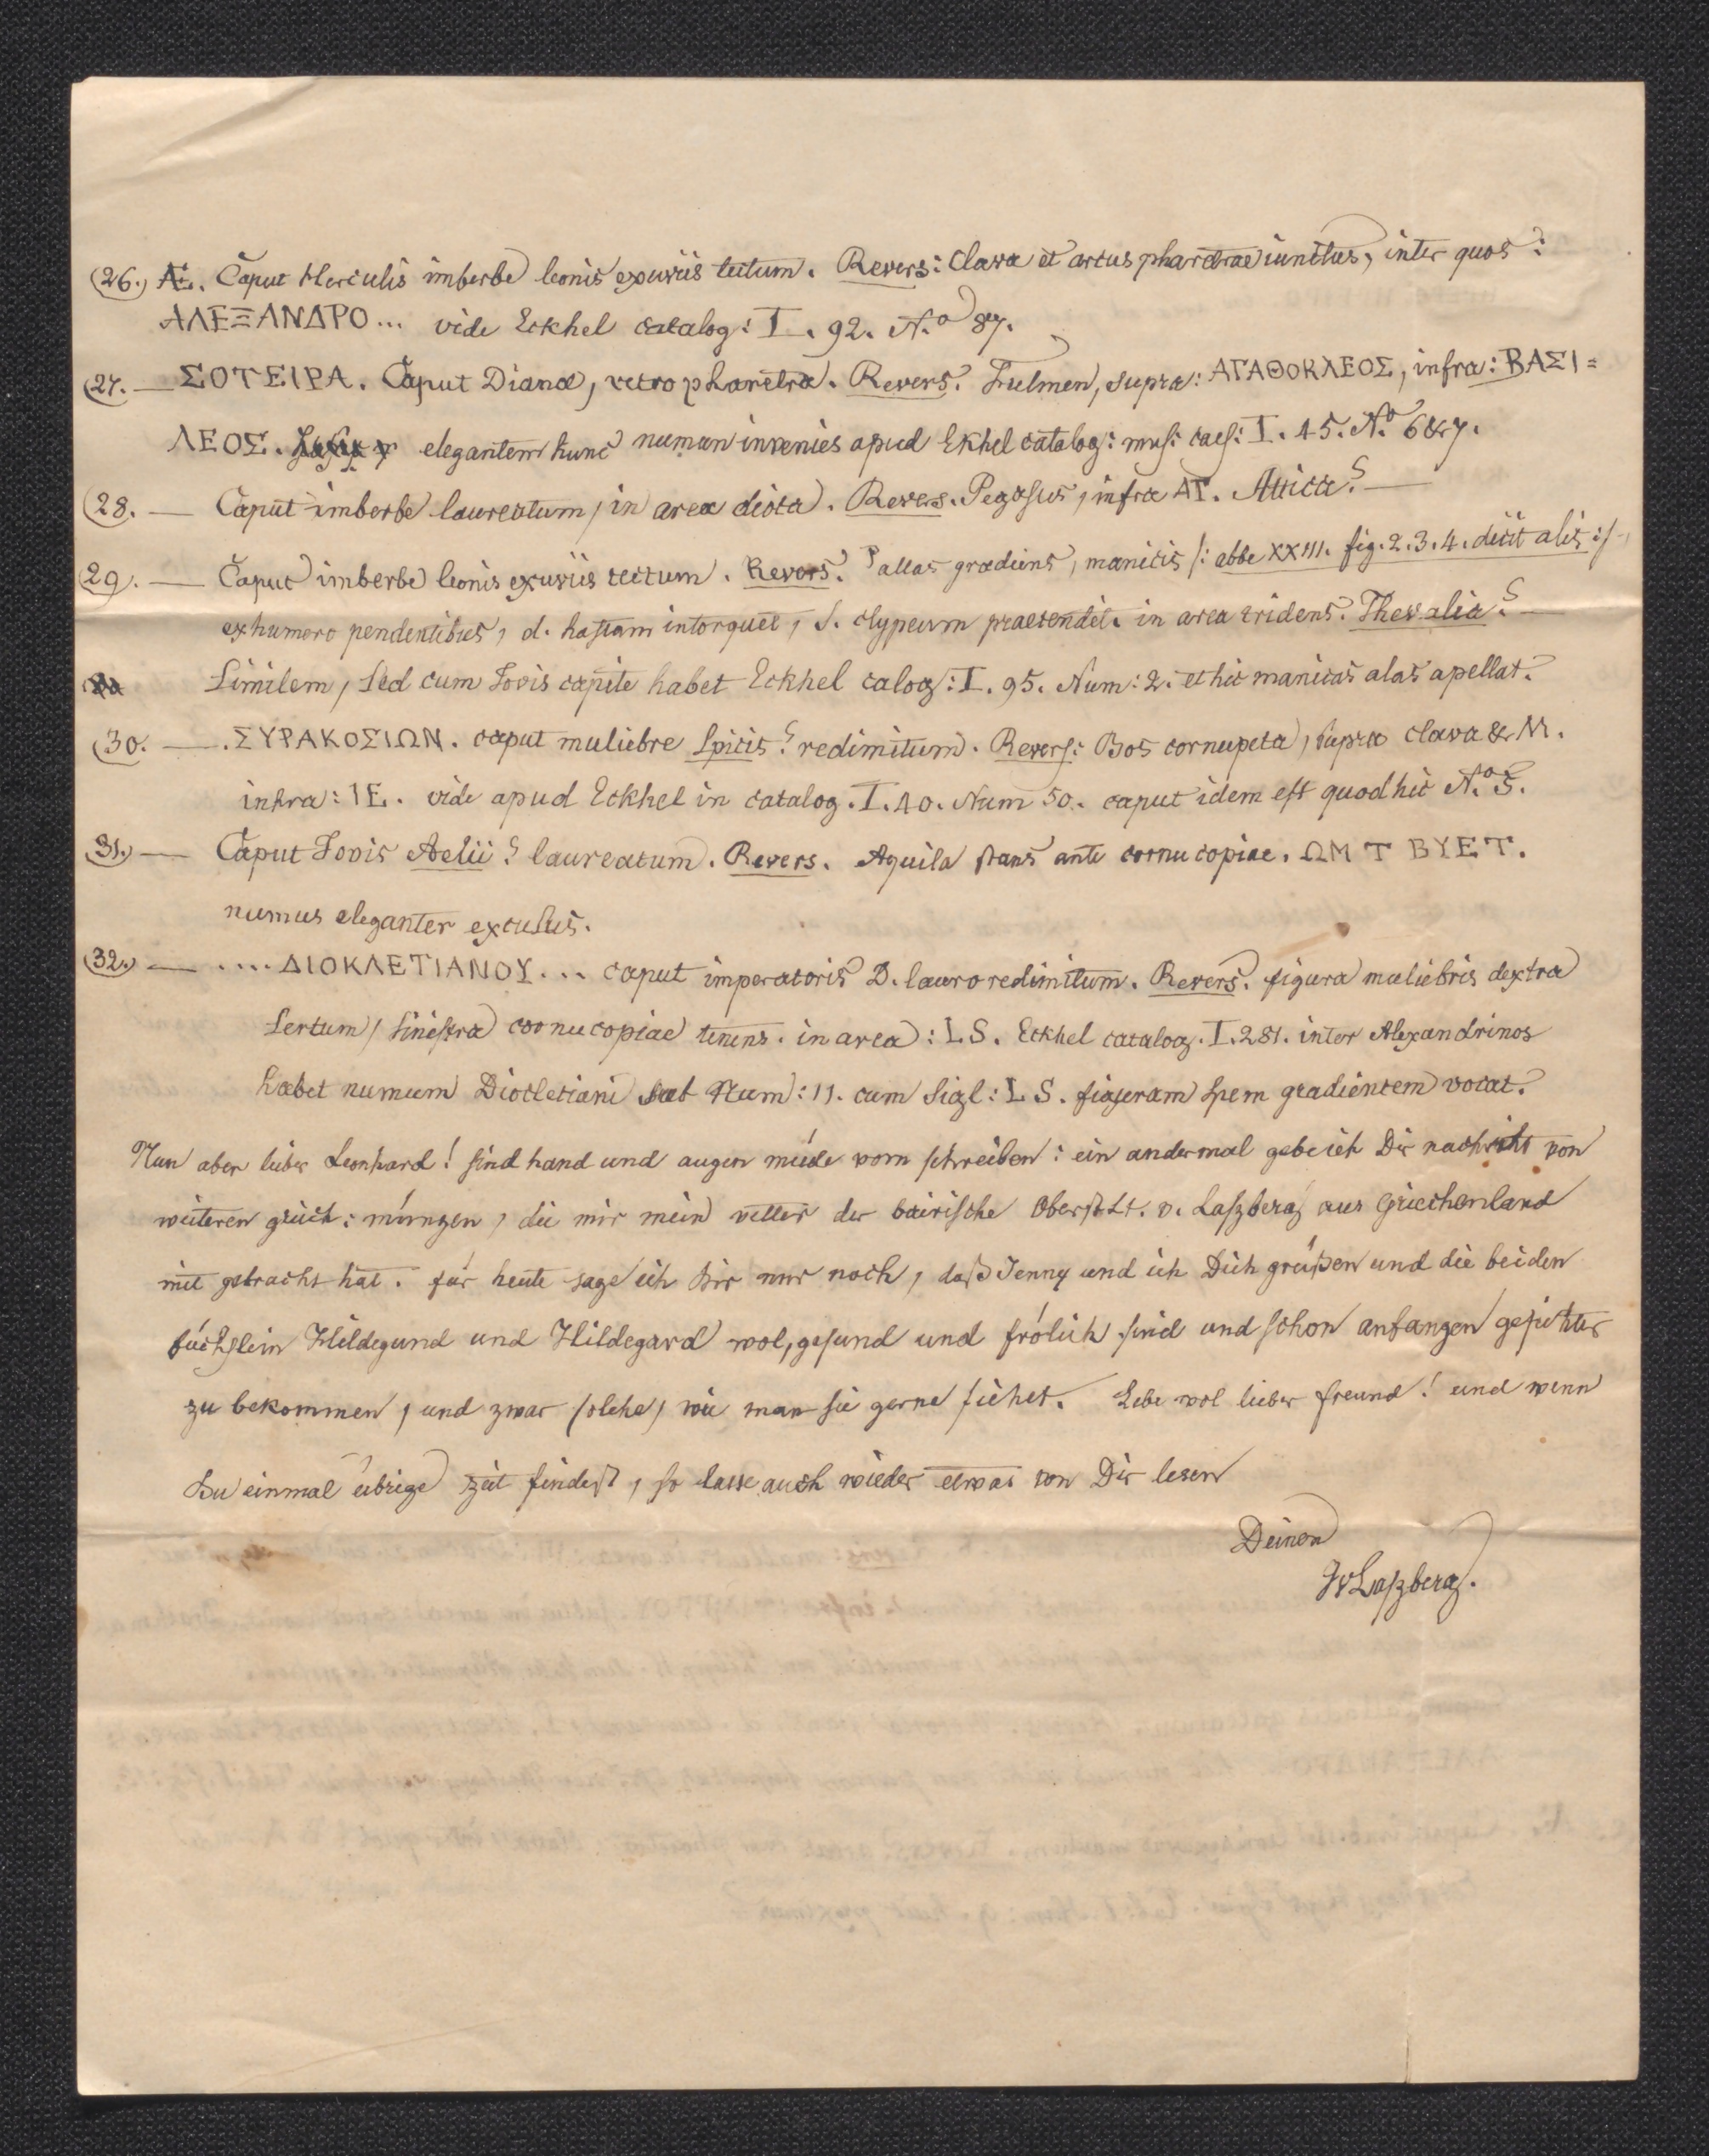 (26.) Æ. Caput Herculis imberbe leonis exuviis tectum. Revers: Clava et arcus pharetrae iunctus, inter quos:
ΑΛΕΞΑΝΔΡΟ... vide Eckhel catalog: I. 92. N.o 87.
(27. — ΣΟΤΕΙΡΑ. Caput Dianæ, retro pharetra. Revers. Fulmen, supra: ΑΓΑΘΟΚΛΕΟΣ, infra: ΒΑΣΙ=
ΛΕΟΣ. elegantem hunc numum invenies apud Ekhel catalog: mus: caes: I. 45. N.o 6&7.
(28. — Caput imberbe laureatum, in area diota. Revers. Pegasus, infra ΑΓ. Attica? —
(29. — Caput imberbe leonis exuviis tectum. Revers. Pallas gradiens, manicis /: abbe XXIII. fig. 2.3.4. dicit alis :/
ex humero pendentibus, d. hastam intorquet, s. clypeum praetendit. in area tridens. Thessalia? —
Similem, sed cum Jovis capite habet Eckhel calog: I. 95. Num: 2. et hic manicas alas apellat.
(30. — . ΣΥΡΑΚΟΣΙΩΝ. caput muliebre spicis? redimitum. Revers: Bos cornupeta, supra clava & M.
infra: IE. vide apud Eckhel in catalog. I. 40. Num 50. caput idem est quod hic N.o 5.
31.) — Caput Jovis Aelii? laureatum. Revers. Aquila stans ante cornu copiae. ΩΜ Τ ΒΥΕΤ.
numus eleganter excusus.
(32.) — .... ΔΙΟΚΛΕΤΙΑΝΟΥ... caput imperatoris D. lauro redimitum. Revers. figura muliebris dextra
sertum, sinistra cornucopiae tenens. in area: L S. Eckhel catalog. I. 281. inter Alexandrinos
habet numum Diocletiani sub Num: 11. cum sigl: L S. figuram spem gradientem vocat.
Nun aber lieber Leonhard! sind hand und augen müde vom schreiben: ein andermal gebe ich Dir nachricht von
weiteren griech: münzen, die mir mein vetter der bairische Oberst Lt. v. Laßberg aus Griechenland
mit gebracht hat. für heute sage ich Dir nur noch, daß Jenny und ich Dich grüßen und die beiden
füchslein Hildegund und Hildegard wol, gesund und frölich sind und schon anfangen gesichter
zu bekommen, und zwar solche, wie man sie gerne siehet. Lebe wol lieber freund! und wenn
Du einmal übrige zeit findest, so lasse auch wieder etwas von Dir lesen
Deinen
JvLaßberg.